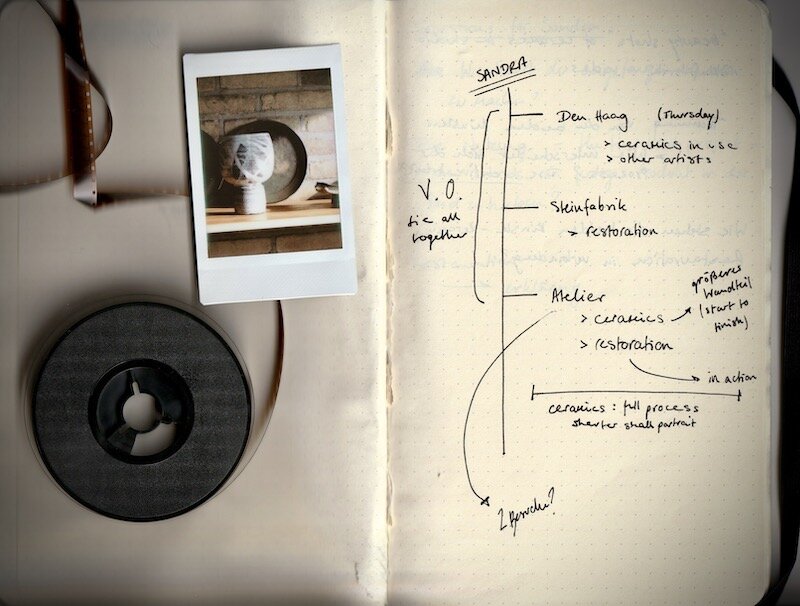 SANDRA
Den Haag (Thursday)
> ceramics in use
> other artists
V.O.
tie all
together
Steinfabrik
> restoration
Atelier
> ceramics
größeres
Wandteil
(start to
finish)
> restoration
in action
ceramics : full process
shorter small portrait
2 Besuche?